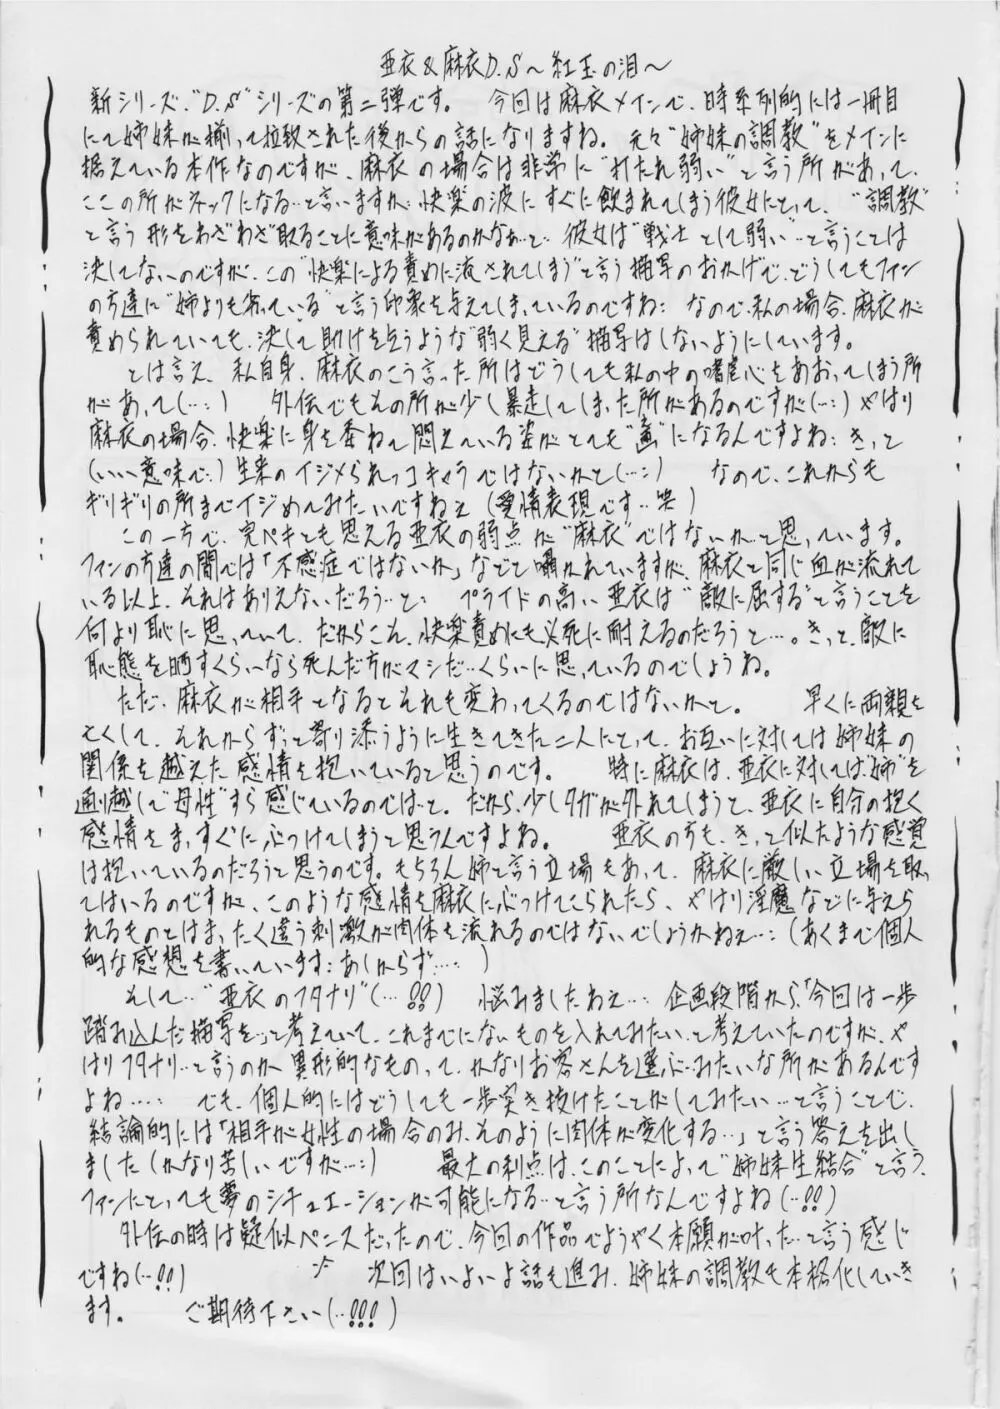 亜衣&麻衣D.S～紅玉の泪～
新シリーズ、"D.S"シリーズの第二弾です。 今回は麻衣メインで、時系列的には一冊目
にて姉妹が揃って拉致された後からの話になりますね。 元々"姉妹の調教"をメインに
据えている本作なのですが、麻衣の場合は非常に"打たれ弱い"と言う所があって、
ここの所がネックになる…と言いますか 快楽の波にすぐに飲まれてしまう彼女にとって、"調教"
と言う形をわざわざ取ることに意味があるのかなぁ…と… 彼女は"戦士として弱い"…と言うことは
決してないのですが、この"快楽による責めに流されてしまう"と言う描写のおかげで、どうしてもファン
の方達に"姉よりも劣っている"と言う印象を与えてしまっているのですね… なので、私の場合、麻衣が
責められていても、決して助けを乞うような"弱く見える"描写はしないようにしています。
とは言え、私自身、麻衣のこう言った所はどうしても私の中の嗜虐心をあおってしまう所
があって(…;) 外伝でもその所が少し暴走してしまった所があるのですが(…;) やはり
麻衣の場合、快楽に身を委ねて悶えている姿がとても"画"になるんですよね… きっと
(いい意味で…)生来のイジメられっコキャラではないかと(…;) なので、これからも
ギリギリの所までイジめてみたいですねぇ(愛情表現です…笑)
この一方で、完ペキとも思える亜衣の弱点が"麻衣"ではないかと思っています。
ファンの方達の間では「不感症ではないか」などと囁かれていますが、麻衣と同じ血が流れて
いる以上、それはありえないだろう…と… プライドの高い亜衣は"敵に屈する"と言うことを
何より恥に思っていて、だからこそ、快楽責めにも必死に耐えるのだろうと…。きっと、敵に
恥態を晒すくらいなら死んだ方がマシだ…くらいに思っているのでしょうね。
ただ、麻衣が相手となるとそれも変わってくるのではないかと。 早くに両親を
亡くして、それからずっと寄り添うように生きてきた二人にとって、お互いに対しては姉妹の
関係を越えた感情を抱いていると思うのです。 特に麻衣は、亜衣に対しては"姉"を
通り越して"母性"すら感じているのではと。だから、少しタガが外れてしまうと、亜衣に自分の抱く
感情をまっすぐにぶつけてしまうと思うんですよね。 亜衣の方も、きっと似たような感覚
は抱いているのだろうと思うのです。もちろん姉と言う立場もあって、麻衣に厳しい立場を取っ
てはいるのですが、このような感情を麻衣にぶつけてこられたら、やはり淫魔などに与えら
れるものとはまったく違う刺激が肉体を流れるのではないでしょうかねぇ…(あくまで個人
的な感想を書いています…あしからず…)
そして…"亜衣のフタナリ"(…!!) 悩みましたねぇ… 企画段階から、「今回は一歩
踏み込んだ描写を…」と考えていて、これまでにないものを入れてみたい、と考えていたのですが、や
はりフタナリ…と言うのか 異形的なものって、かなりお客さんを選ぶ…みたいな所があるんです
よね…… でも、個人的にはどうしても一歩突き抜けたことがしてみたい…と言うことで、
結論的には「相手が女性の場合のみ、そのように肉体が変化する…」と言う答えを出し
ました(かなり苦しいですが…;) 最大の利点は、このことによって"姉妹生結合"と言う、
ファンにとっても夢のシチュエーションが可能になる…と言う所なんですよね(…!!)
外伝の時は疑似ペニスだったので、今回の作品でようやく本願が叶った…と言う感じ
ですね(…!!) 次回はいよいよ話も進み、姉妹の調教も本格化していき
ます。 ご期待下さい(…!!!)